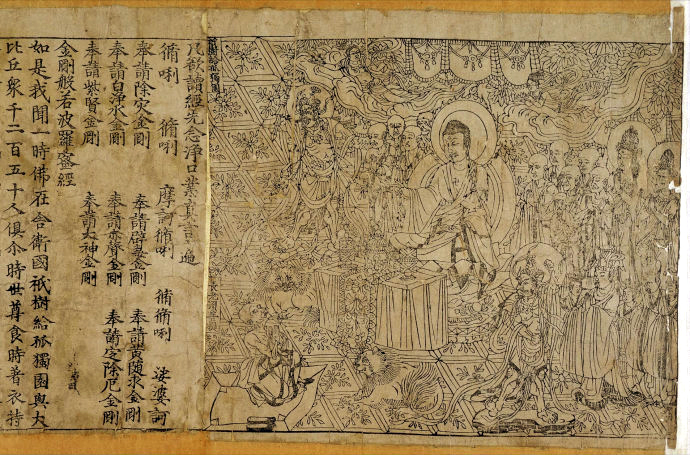 祇樹給孤獨園
長老須菩提
凡欲讀經先念淨口業真言一遍
脩唎 脩唎 摩訶脩唎 脩脩唎 娑婆訶
奉請除灾金剛 奉請辟毒金剛 奉請黃隨求金剛
奉請白淨水金剛 奉請赤聲金剛 奉請定除厄金剛
奉請紫賢金剛 奉請大神金剛
金剛般若波羅蜜經
如是我聞一時佛在舍衛國祇樹給孤獨園與大
比丘衆千二百五十人俱尒時世尊食時著衣持